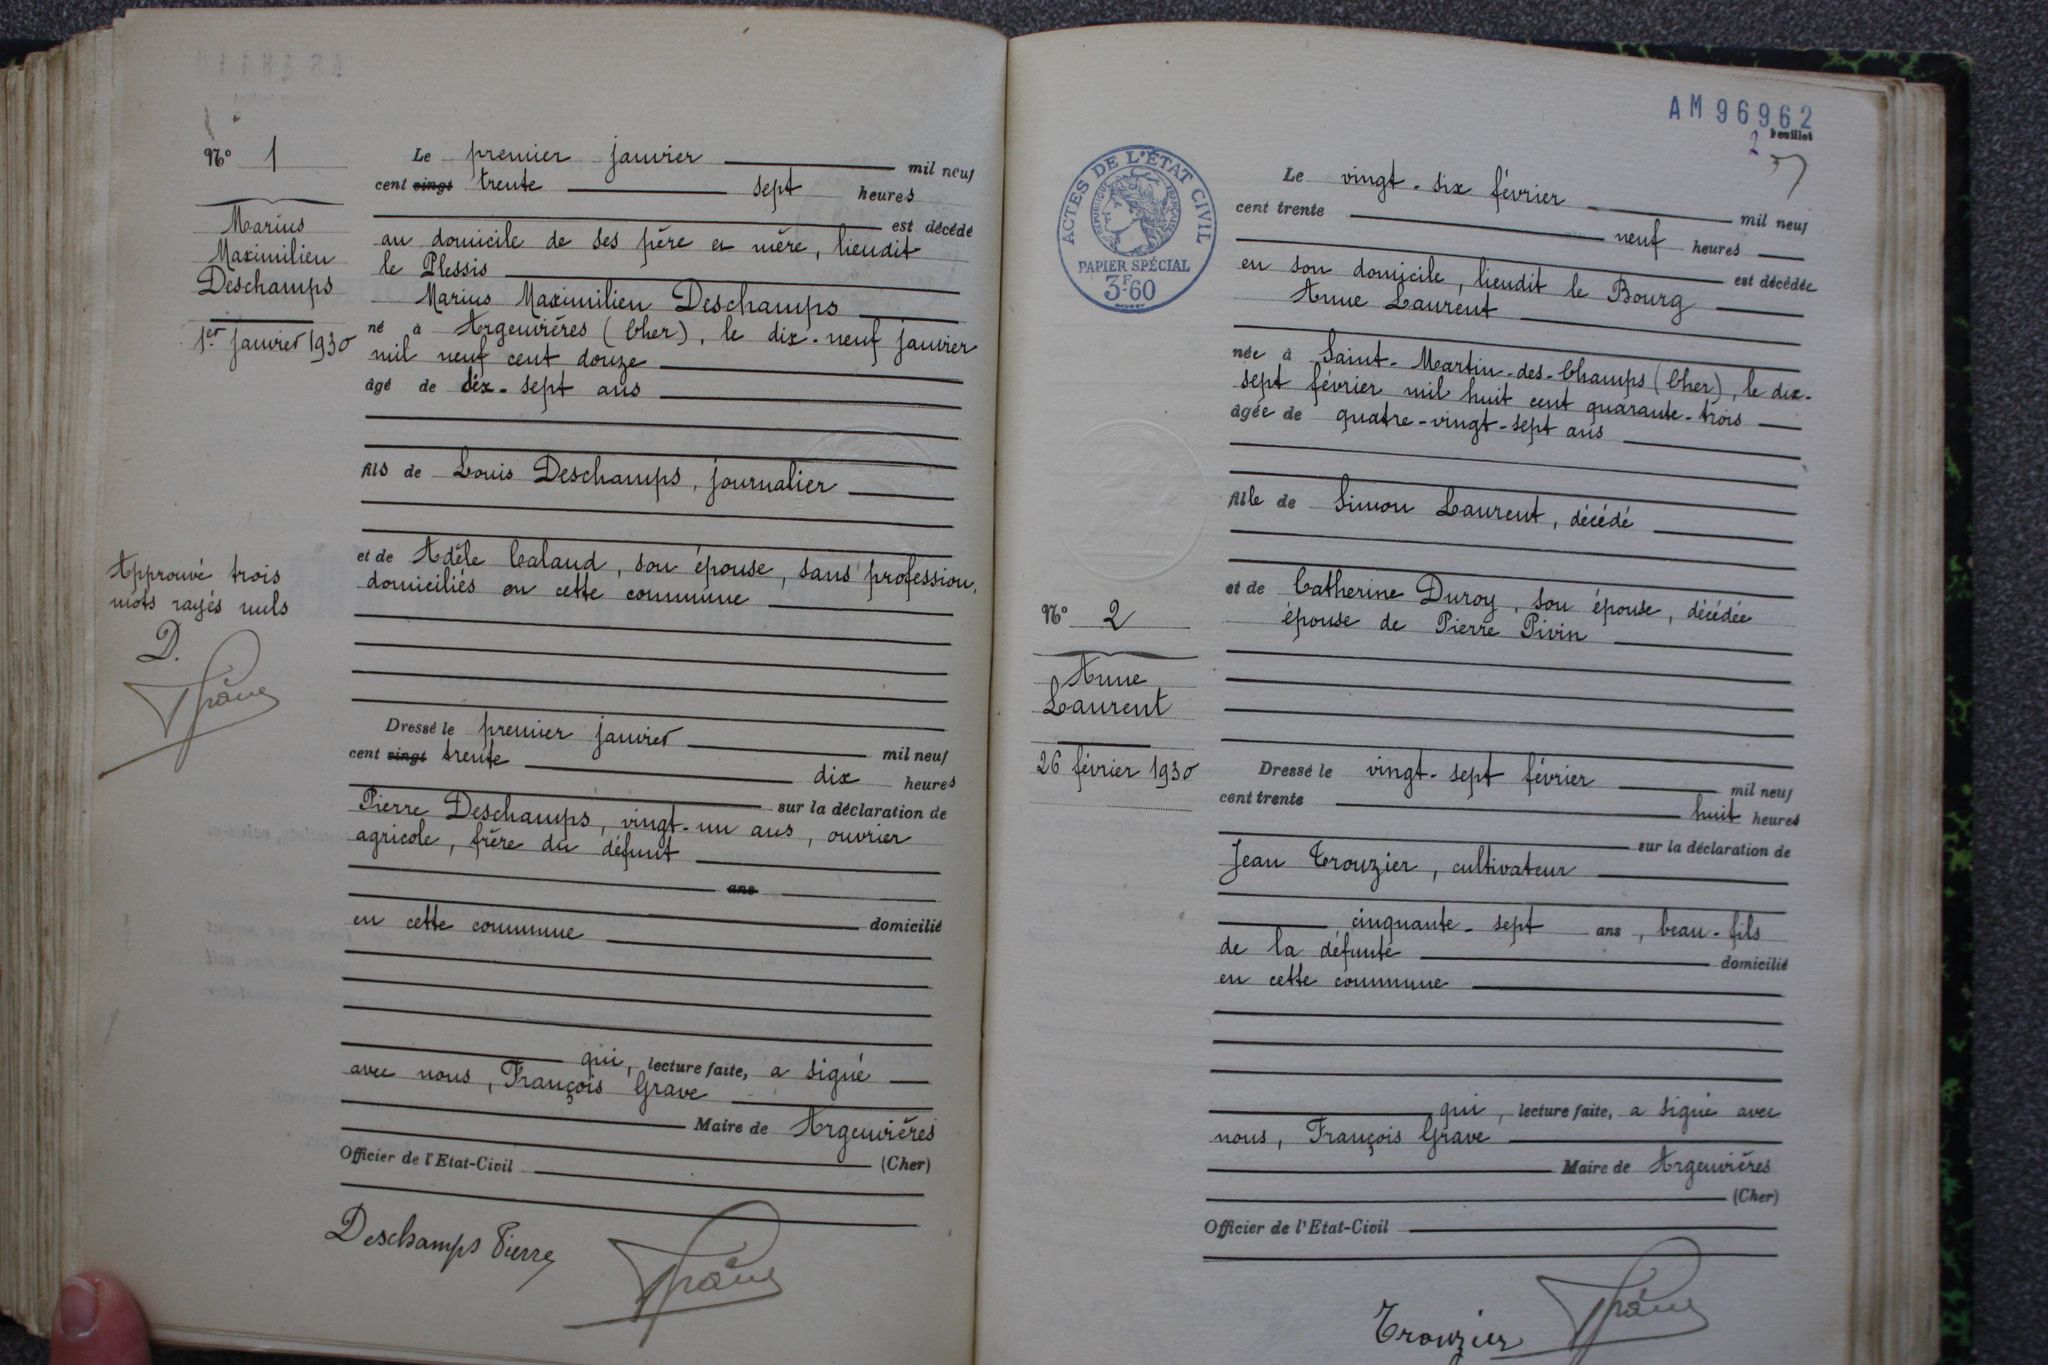 N° 1
Marius
Maximilien
Deschamps
1er janvier 1930
Approuvé trois
mots rayés nuls
D.
Le premier janvier mil neuf
cent vingt trente sept heures
est décédé
au domicile de ses père et mère, lieudit
le Plessis
Marius Maximilien Deschamps
né à Argenvières (Cher), le dix-neuf janvier
mil neuf cent douze
âgé de dix-sept ans
fils de Louis Deschamps, journalier
et de Adèle Calaud, son épouse, sans profession,
domiciliés en cette commune
Dressé le premier janvier mil neuf
cent vingt trente dix heures
sur la déclaration de
Pierre Deschamps, vingt-un ans, ouvrier
agricole, frère du défunt
ans
domicilié
en cette commune
qui, lecture faite, a signé
avec nous, François Grave
Maire de Argenvières
(Cher)
Officier de l'Etat-Civil
Deschamps Pierre
AM96962
Feuillet
2
ACTES DE L'ÉTAT CIVIL
RÉPUBLIQUE FRANÇAISE
PAPIER SPÉCIAL
3F.60
N° 2
Anne
Laurent
26 février 1930
Le vingt-six février mil neuf
cent trente neuf heures
est décédée
en son domicile, lieudit le Bourg
Anne Laurent
née à Saint-Martin-des-Champs (Cher), le dix-
sept février mil huit cent quarante-trois
âgée de quatre-vingt-sept ans
fille de Simon Laurent, décédé
et de Catherine Duroy, son épouse, décédée
épouse de Pierre Pivin
Dressé le vingt-sept février mil neuf
cent trente huit heures
sur la déclaration de
Jean Trouzier, cultivateur
cinquante-sept ans, beau-fils
de la défunte domicilié
en cette commune
qui, lecture faite, a signé avec
nous, François Grave
Maire de Argenvières
(Cher)
Officier de l'Etat-Civil
Trouzier